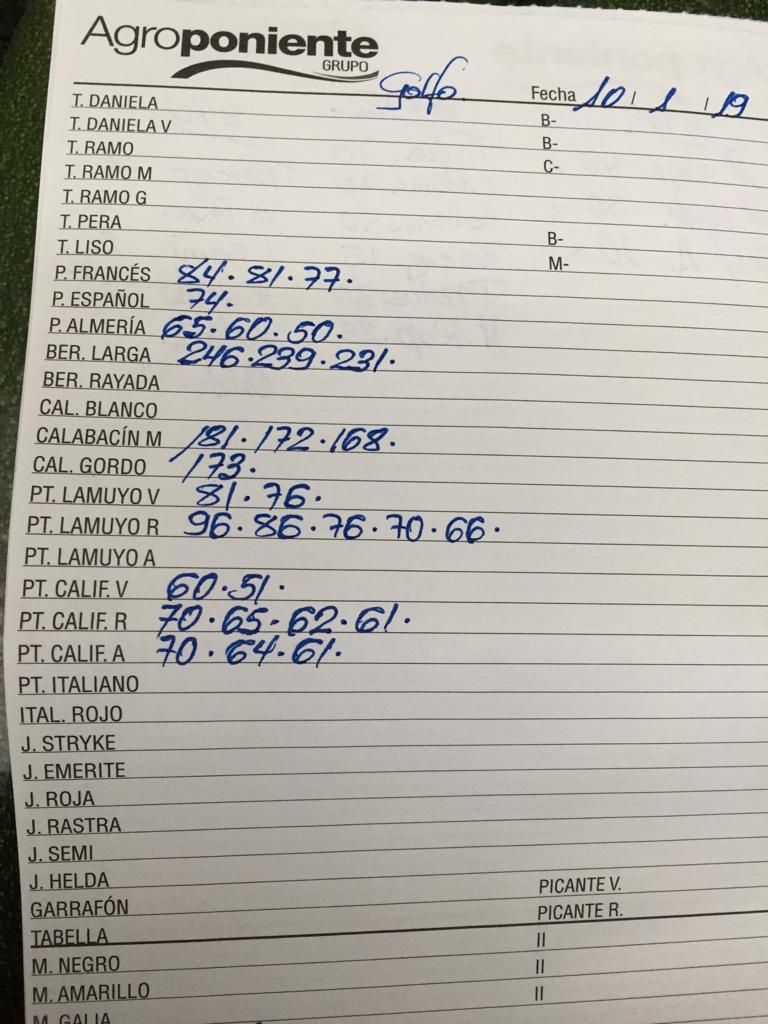 Agroponiente
GRUPO
Golfo. Fecha 10 / 1 / 19
T. DANIELA B-
T. DANIELA V B-
T. RAMO C-
T. RAMO M
T. RAMO G
T. PERA B-
T. LISO M-
P. FRANCÉS 84. 81. 77.
P. ESPAÑOL 74.
P. ALMERÍA 65. 60. 50.
BER. LARGA 246. 239. 231.
BER. RAYADA
CAL. BLANCO
CALABACÍN M 181. 172. 168.
CAL. GORDO 173.
PT. LAMUYO V 81. 76.
PT. LAMUYO R 96. 86. 76. 70. 66.
PT. LAMUYO A
PT. CALIF. V 60. 51.
PT. CALIF. R 70. 65. 62. 61.
PT. CALIF. A 70. 64. 61.
PT. ITALIANO
ITAL. ROJO
J. STRYKE
J. EMERITE
J. ROJA
J. RASTRA
J. SEMI
J. HELDA PICANTE V.
GARRAFÓN PICANTE R.
TABELLA II
M. NEGRO II
M. AMARILLO II
M. GALIA